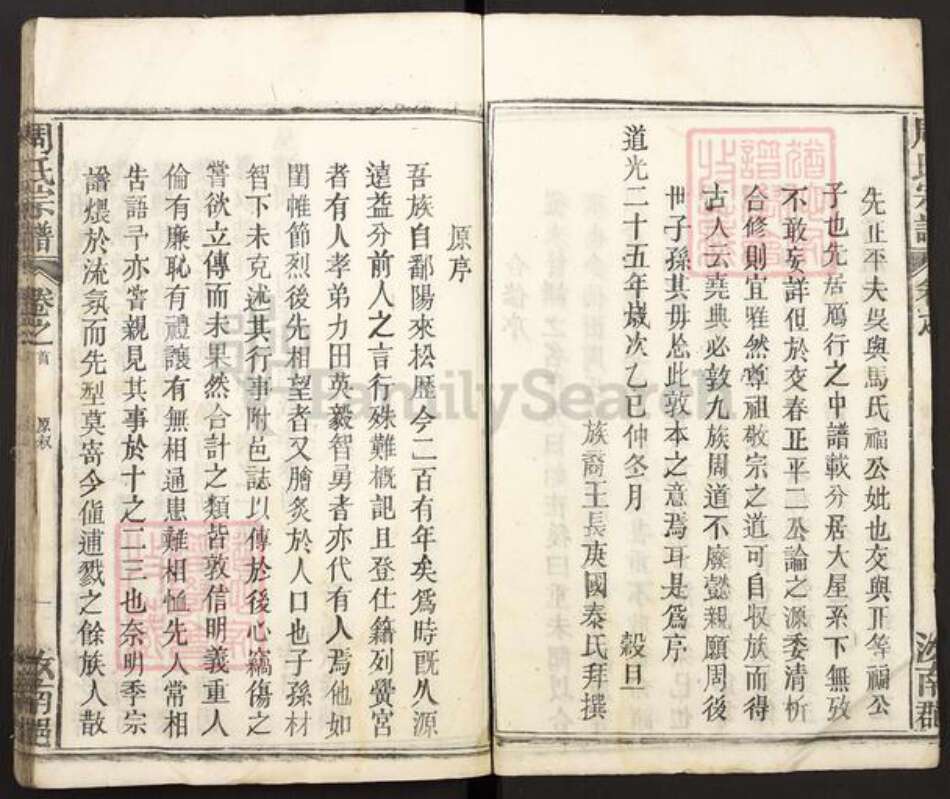 先正平夫吳與馬氏福公妣也交與正等福公
子也先居鴈行之中譜載分居大屋系下無攷
不敢妄詳但於交春正平二公論之源委清晰
合修則宜雖然尊祖敬宗之道可自収族而得
古人云堯典必敦九族周道不廢懿親願周後
世子孫其毋忘此敦本之意焉耳是爲序
道光二十五年歲次乙巳仲冬月 穀旦
族裔王長庚國泰氏拜撰
原序
吾族自鄱陽來松歷今二百有年矣爲時既久源
遠益分前人之言行殊難概記且登仕籍列黌宮
者有人孝弟力田英毅智勇者亦代有人焉他如
閨帷節烈後先相望者又膾炙於人口也子孫材
智下未克述其行事附邑誌以傳於後心竊傷之
嘗欲立傳而未果然合計之類皆敦信明義重人
倫有廉恥有禮讓有無相通患難相恤先人常相
告語予亦嘗親見其事於十之二三也奈明季宗
譜煨於流氛而先型莫寄今僅逋戮之餘族人散
周氏宗譜 卷之首 原叙 一
周氏宗譜
汝南郡
FamilySearch